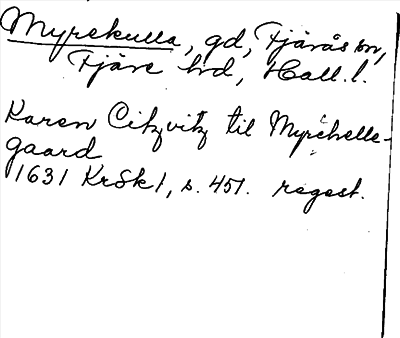 Myrekulla, gd, Fjärås sn,
Fjäre hd, Hall. l.
Karen Citzvitz til Myrehelle-
gaard
1631 KrSk 1, s. 451. regest.